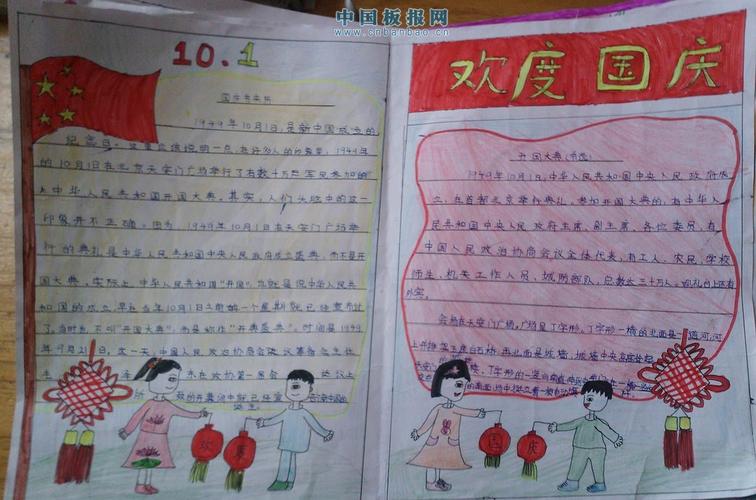 中国板报网
www.cnbanbao.cn
10.1
国庆节来历
1949年10月1日,是新中国成立的
纪念日。这里应该说明一点,在许多人的印象里,1949年
的10月1日在北京天安门广场举行了有数十万军民参加的
中华人民共和国开国大典。其实,人们头脑中的这一
印象并不正确。因为,1949年10月1日在天安门广场举
行的典礼是中华人民共和国中央人民政府成立盛典,而不是开
国大典。实际上,中华人民共和国"开国",也就是说中华人民共
和国的成立,早在当年10月1日之前的一个星期就已经宣布过
了。当时也不叫"开国大典",而是称作"开典盛典"。时间是1949
年9月21日。这一天,中国人民政治协商会议筹备会主任
在政协第一届会 议上
致的开幕词中就已经宣 告
欢 度
欢度国庆
开国大典(节选)
1949年10月1日,中华人民共和国中央人民政府成
立,在首都北京举行典礼。参加开国大典的,有中华人
民共和国中央人民政府主席、副主席、各位委员,有
中国人民政治协商会议全体代表,有工人、农民、学校
师生、机关工作人员、城防部队。总数达三十万人,观礼台上还有
外宾。
会场在天安门广场。广场呈丁字形。丁字形一横的北面是一道河,河
上并排架着五座白石桥;再北面是城墙,城墙中央高
国 庆